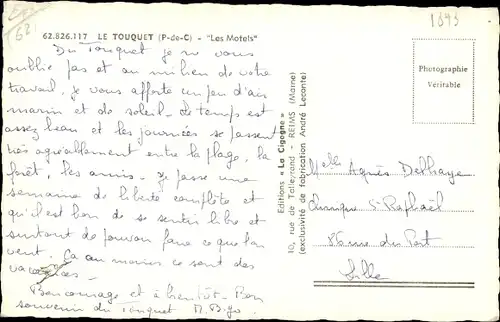 62
1893
62.826.117 LE TOUQUET (P-de-C) - "Les Motels"
Du Touquet je ne vous
oublie pas et au milieu de votre
travail, je vous apporte un peu d'air
marin et de soleil - le temps est
assez beau et les journées se passent
très agréablement entre la plage, la
forêt, les amis - Je passe une
semaine de liberté complète et
qu'il est bon de se sentir libre et
surtout de pouvoir faire ce que l'on
veut. Ça au moins ce sont des
vacances -
Bon courage et à bientôt - Bon
souvenir du Touquet
Editions « La Cigogne »
10, rue de Talleyrand - REIMS (Marne)
(exclusivité de fabrication André Leconte)
Photographie
Véritable
Melle Agnès Delhaye
Clinique St Raphaël
86 rue du Port
Lille